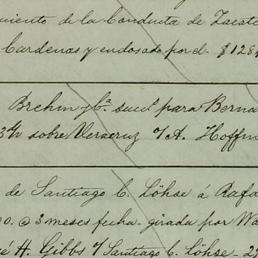 uiento de la Conducta de Zacate
Cardenas y endosado por d. $1284
Brehm y Ca. sucs. para Berna
3% sobre Veracruz 7/A. Hoffm
de Santiago C. Löhse á Rafa
0. @ 3 meses fecha - girada por Wa
é H. Gibbs y Santiago C. Löhse - 27